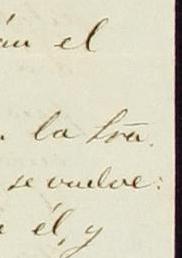 án el
la Sra.
se vuelve:
él, y